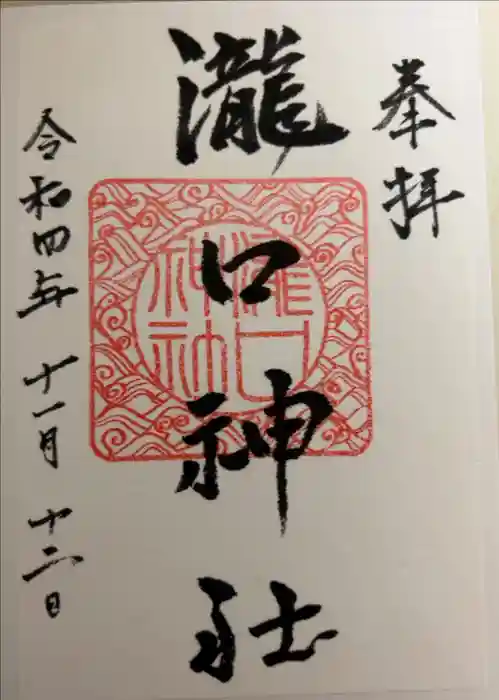 奉拝
瀧口神社
瀧口神社
令和四年 十一月 十二日